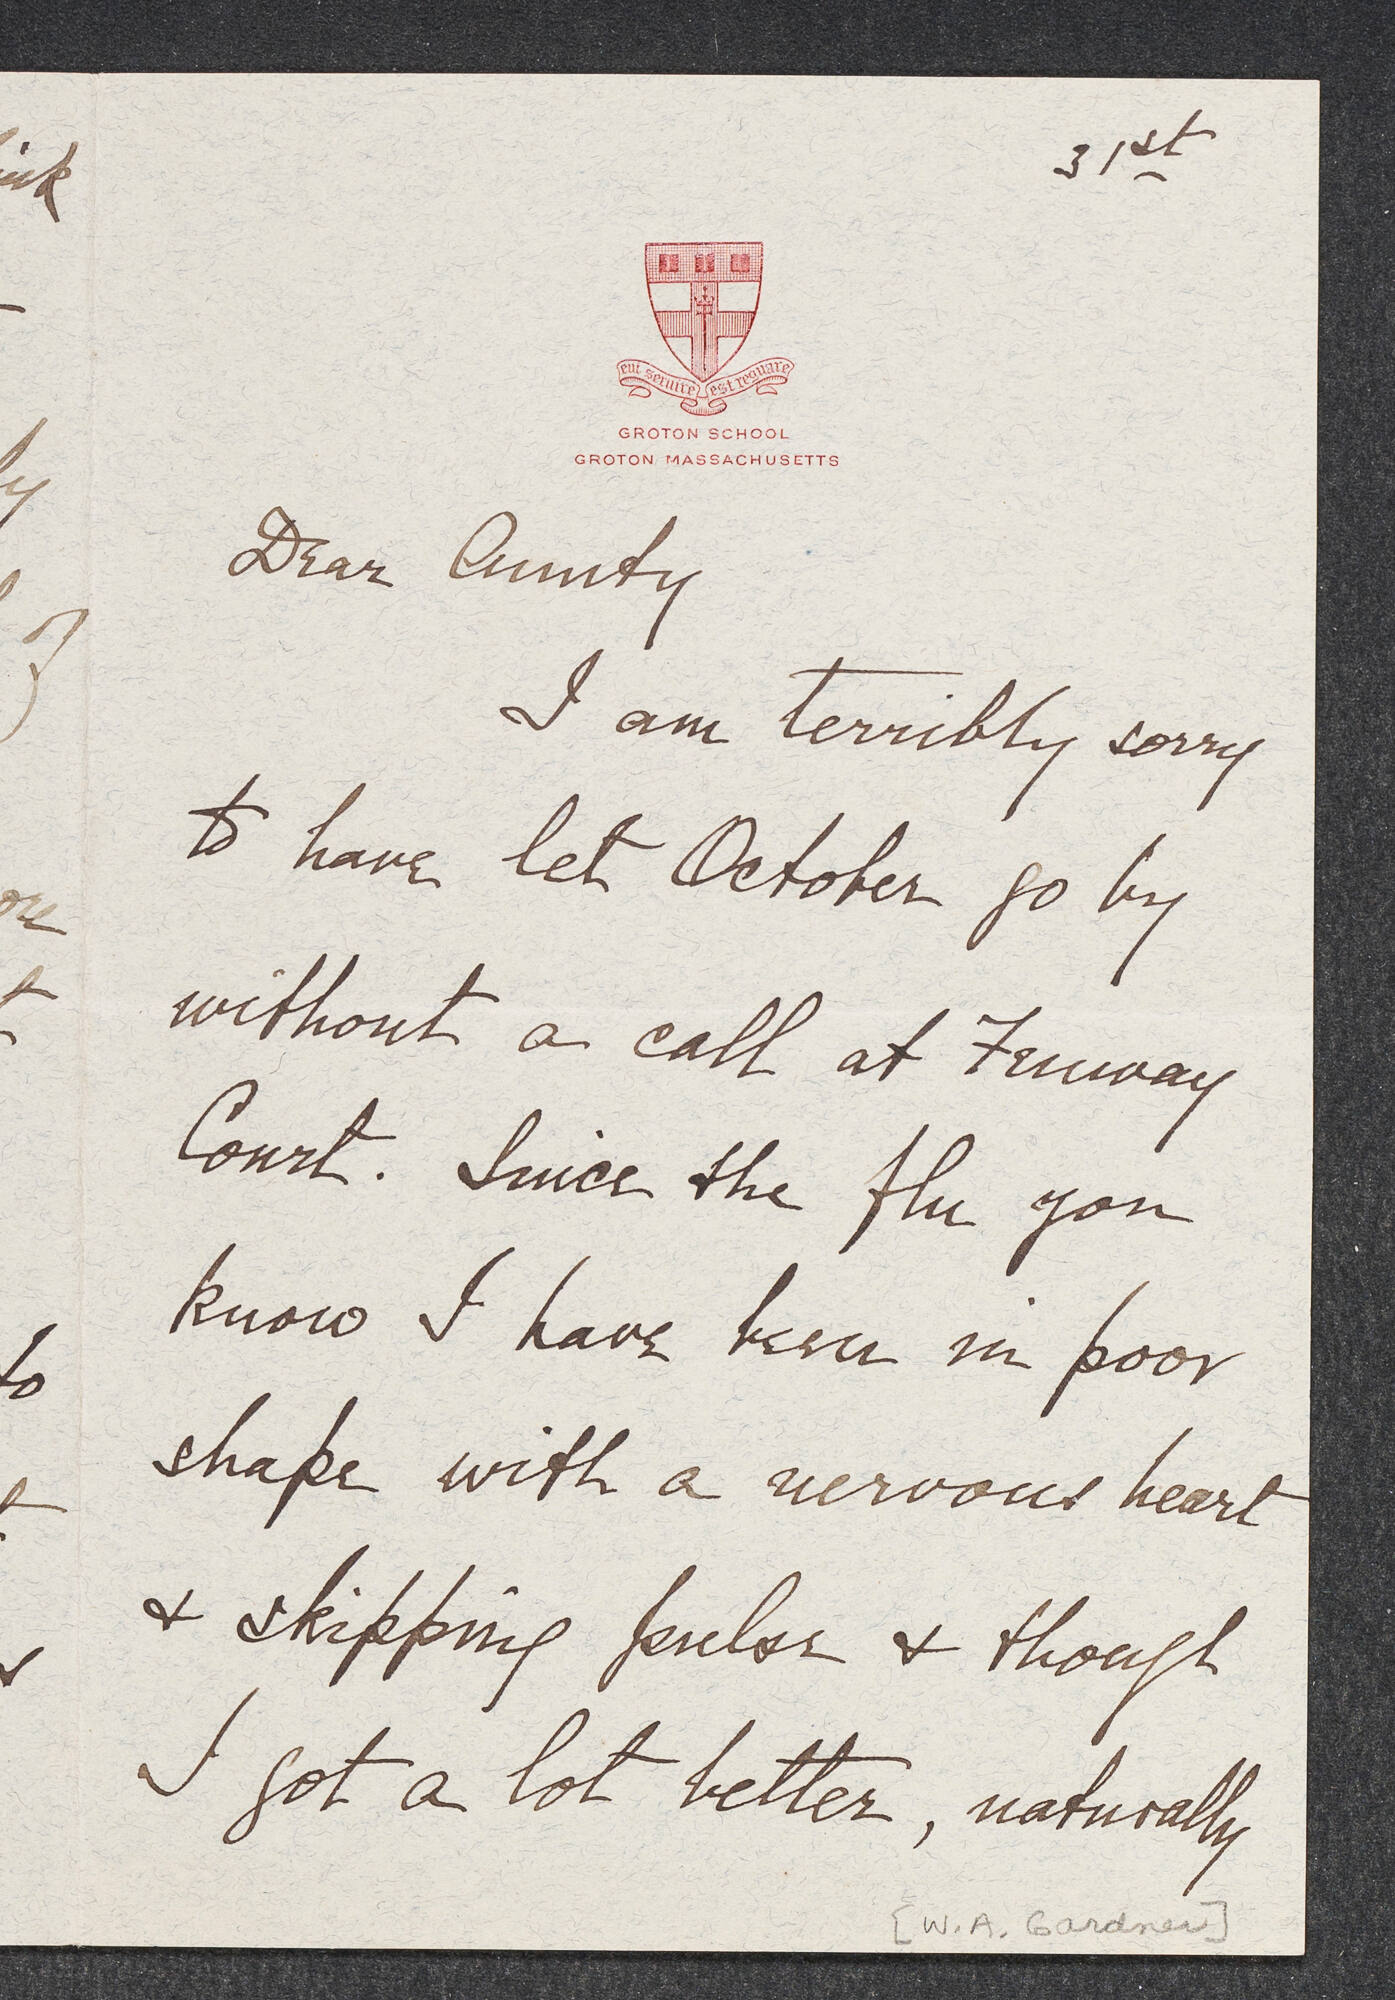 31st
cui servire est regnare
GROTON SCHOOL
GROTON MASSACHUSETTS
Dear Aunty
I am terribly sorry
to have let October go by
without a call at Fenway
Court. Since the flu you
know I have been in poor
shape with a nervous heart
& skipping pulse & though
I got a lot better, naturally
[W.A. Gardner]
to